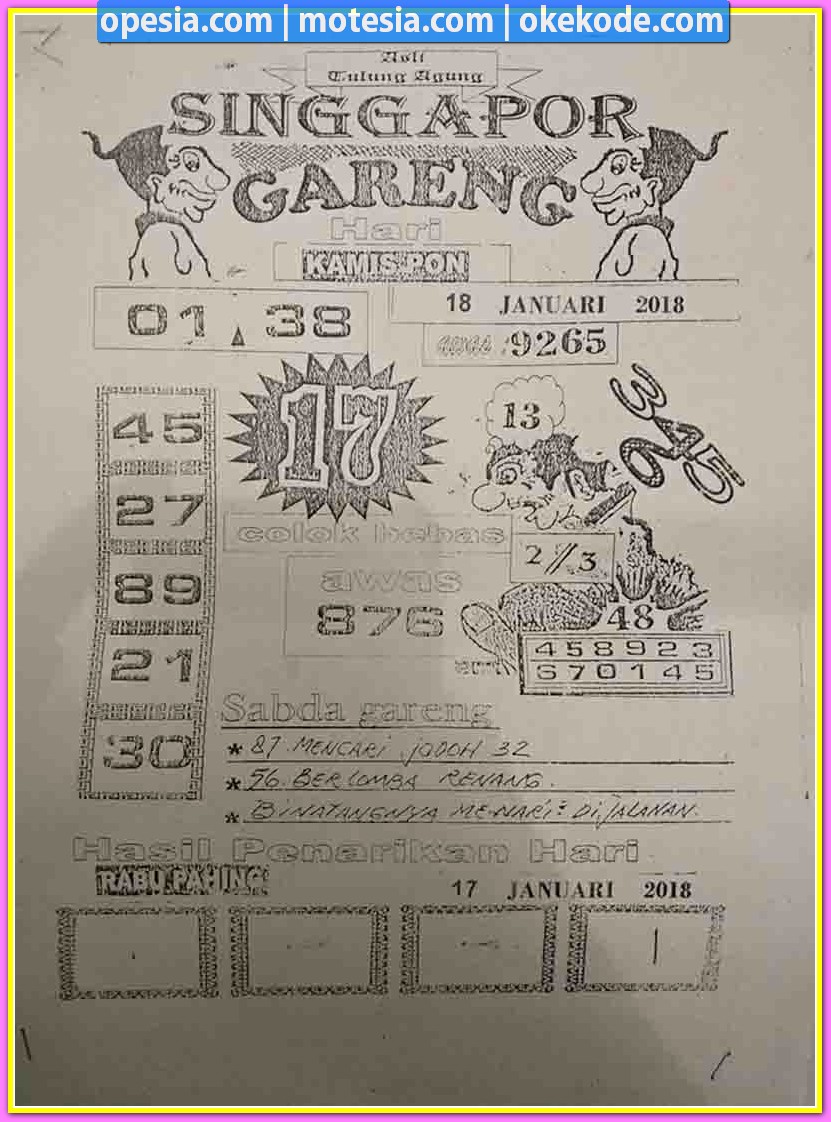 opesia.com | motesia.com | okekode.com
Asli
Tulung Agung
SINGGAPOR
GARENG
Hari
KAMIS PON
01 38
18 JANUARI 2018
9265
17
13
345
6
45
27
89
21
30
colok bebas
awas
876
2//3
48
458923
670145
Sabda gareng
* 87. MENCARI JODOH 32
* 56. BERLOMBA RENANG.
* BINATANGNYA MENARI² DIJALANAN.
Hasil Penarikan Hari
RABU PAHING
17 JANUARI 2018